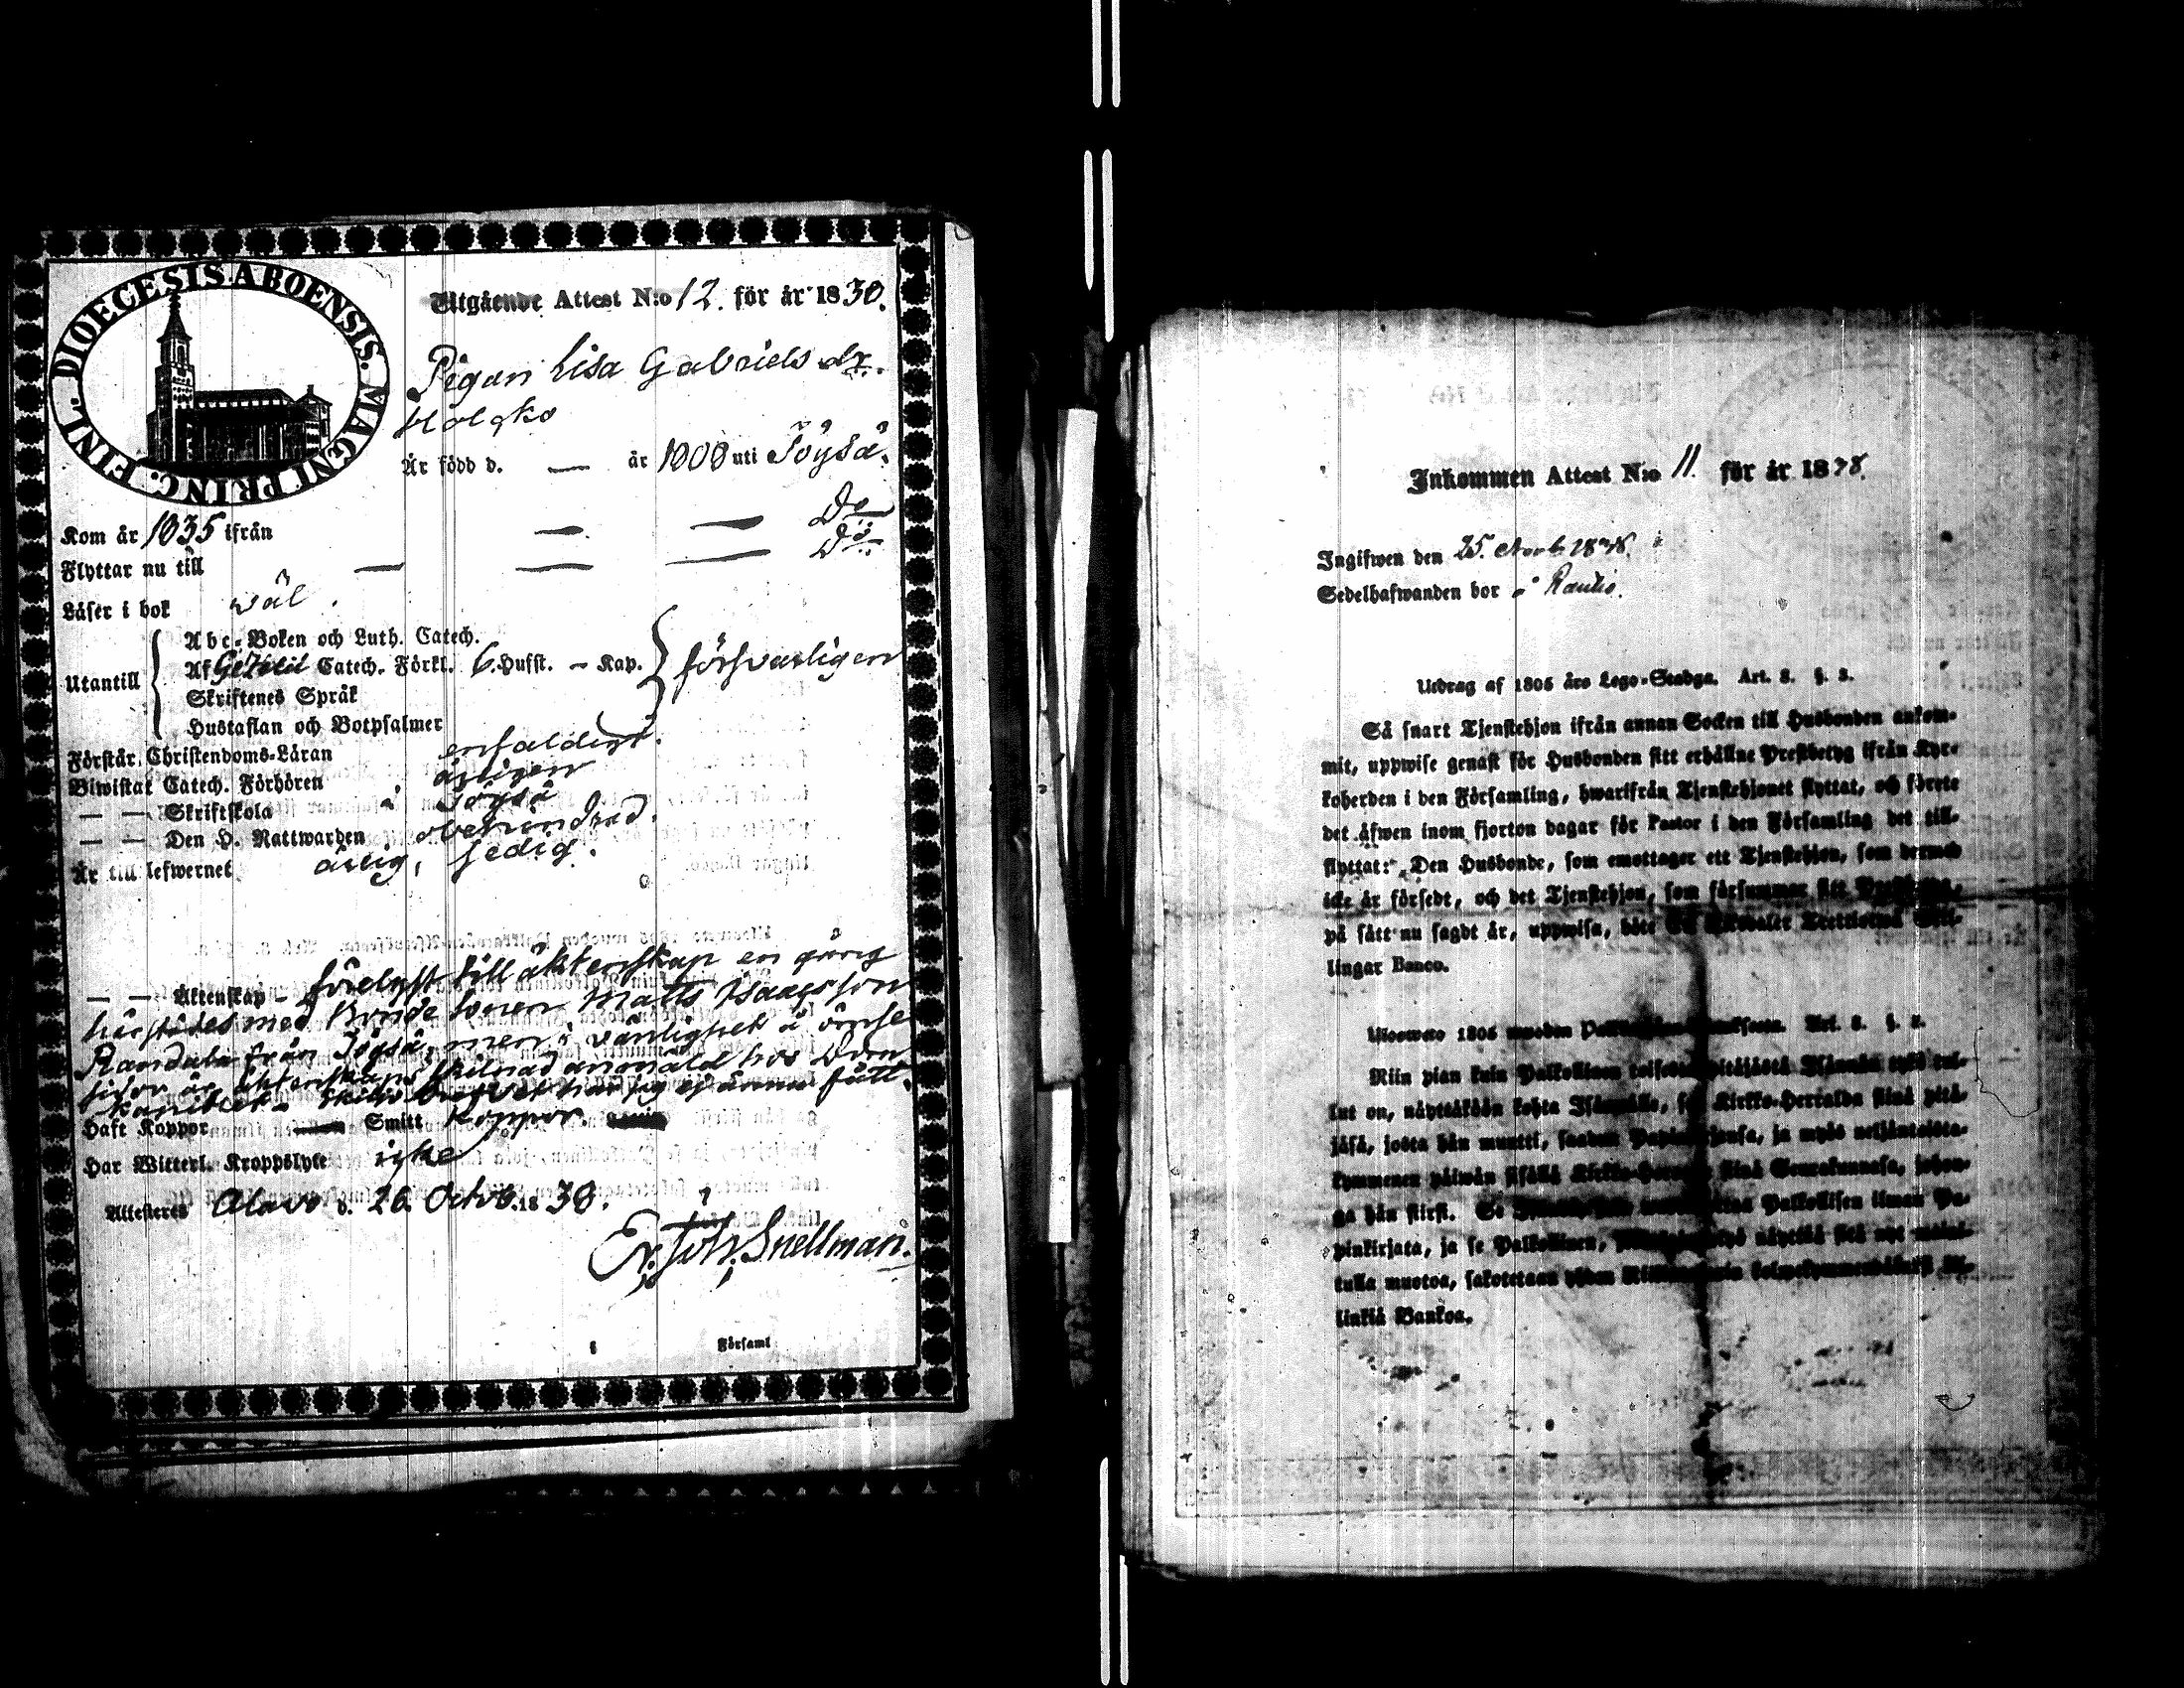 FINL. DIOECESIS ABOENSIS. MAGNI PRINC.
Utgående Attest N:o 12. för år 1838.
Pigan Lisa Gabriels dr.
Är född d. — år 1808 uti Töysä.
Kom år 1835 ifrån — — Do
Flyttar nu till — — — Do
Läser i bok wäl.
Utantill
Abc-Boken och Luth. Catech.
Af Gezelii Catech. Förkl. 6. Hufst. - Kap. försvarligen
Skriftenes Språk
Hustaflan och Botpsalmer
Förstår Christendoms-Läran enfaldigt.
Biwistat Catech. Förhören årligen
— — Skriftskola i Töysä
— — Den H. Nattwarden obehindrad.
Är till lefwernet ärlig, sedig.
— — Äktenskap - förelyst till äktenskap en gång
härstädes med Bonde sonen Matts Isaacsson
Randala från Töysä; men i vänlighet å ömse
sidor är äktenskaps skilnad anmäld hos Dom
kapitlet - Skiljobrefvet har jag ej ännu fått.
Haft Koppor Smitt Koppor.
Har Witterl. Kroppslyte icke
Attesteras Alavo d. 26. Octob. 1838.
Er. Joh. Snellman.
i Församl
Inkommen Attest N:o 11. för år 1838.
Ingifwen den 25. Novb 1838.
Sedelhafwanden bor å Rautio.
Utdrag af 1805 års Lego-Stadga. Art. 8. §. 3.
Så snart Tjenstehjon ifrån annan Socken till Husbonden ankom-
mit, uppwise genast för Husbonden sitt erhållne Prestbetyg ifrån Kyr-
koherden i den Församling, hwarifrån Tjenstehjonet flyttat, och förete
det äfwen inom fjorton dagar för Pastor i den Församling det till-
flyttat: Den Husbonde, som emottager ett Tjenstehjon, som dermed
icke är försedt, och det Tjenstehjon, som försummar sitt
på sätt nu sagdt är, uppwisa, böte
lingar Banco.
Uloswero 1805 wuoden Art. 8. §. 3.
Niin pian kuin Palkollinen toisesta pitäjästä Isännän tykö tul-
lut on, näyttäköön kohta Kirkko-Herralda siinä pitä-
jäsä, josta hän muutti, saadun ja myös neljäntoista-
kymmenen päiwän sisällä siinä Seurakunnasa, johon-
ga hän siirsi. Palkollisen ilman Pa-
pinkirjata, ja se Palkollinen, näyttää sitä nyt maini-
tulla muotoa, sakotetaan
linkiä Bankoa.